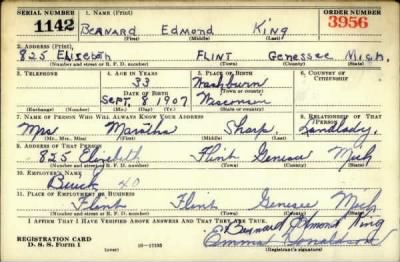 SERIAL NUMBER 1. NAME (Print) ORDER NUMBER
1142 BERNARD EDMOND KING 3956
(First) (Middle) (Last)
2. ADDRESS (Print)
825 Elizebeth FLINT Genessee Mich.
(Number and street or R. F. D. number) (Town) (County) (State)
3. TELEPHONE 4. AGE IN YEARS 5. PLACE OF BIRTH 6. COUNTRY OF CITIZENSHIP
33 Washburn
DATE OF BIRTH (Town or county)
Sept. 8 1907 Wisconsin
(Exchange) (Number) (Mo.) (Day) (Yr.) (State or country)
7. NAME OF PERSON WHO WILL ALWAYS KNOW YOUR ADDRESS 8. RELATIONSHIP OF THAT PERSON
Mrs Maratha Sharp Landlady
(Mr., Mrs., Miss) (First) (Middle) (Last)
9. ADDRESS OF THAT PERSON
825 Elizabeth Flint Genesee Mich
(Number and street or R. F. D. number) (Town) (County) (State)
10. EMPLOYER'S NAME
Buick 40
11. PLACE OF EMPLOYMENT OR BUSINESS
Flint Flint Genesee Mich
(Number and street or R. F. D. number) (Town) (County) (State)
I AFFIRM THAT I HAVE VERIFIED ABOVE ANSWERS AND THAT THEY ARE TRUE.
Bernard Edmond King
REGISTRATION CARD Emma Donaldson
D. S. S. FORM 1 (Registrant's signature)